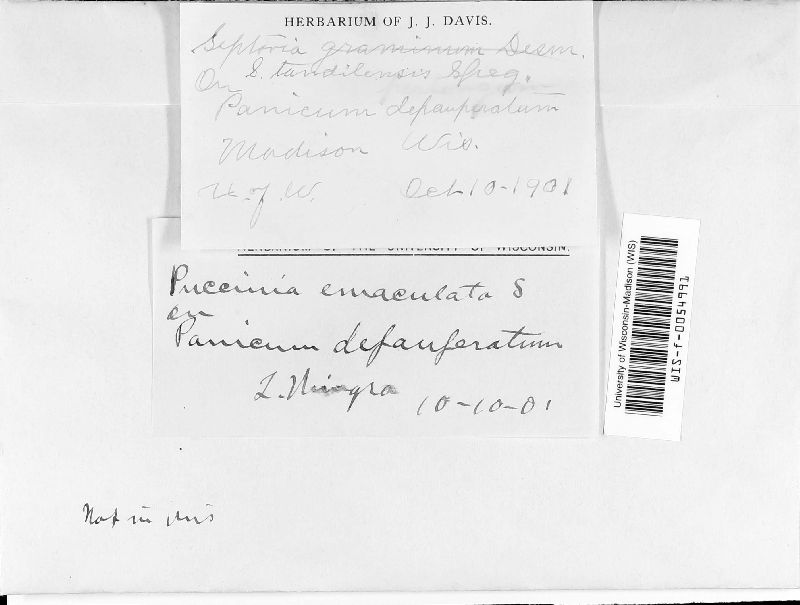 HERBARIUM OF J. J. DAVIS.
Septoria graminum Desm.
S. tandilensis Speg.
On
Panicum depauperatum
Madison Wis.
U. of W. Oct 10-1901
HERBARIUM OF THE UNIVERSITY OF WISCONSIN.
Puccinia emaculata S
on
Panicum depauperatum
L. Wingra 10-10-01
Not in this
University of Wisconsin-Madison (WIS)
WIS-f-0054991